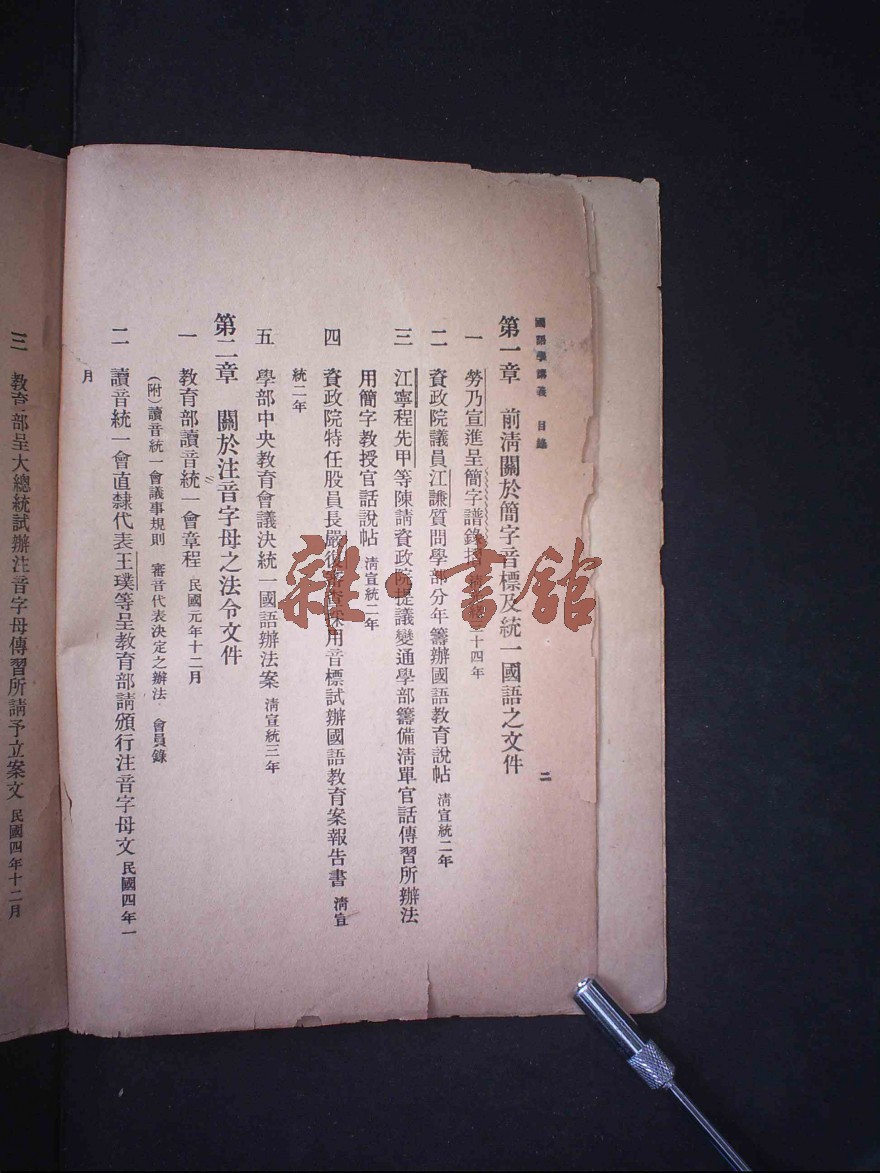 國語學講義　目錄　二
第一章　前清關於簡字音標及統一國語之文件
一　勞乃宣進呈簡字譜錄摺　三十四年
二　資政院議員江謙質問學部分年籌辦國語教育說帖　清宣統二年
三　江寧程先甲等陳請資政院提議變通學部籌備清單官話傳習所辦法
用簡字教授官話說帖　清宣統二年
四　資政院特任股員長嚴復審查採用音標試辦國語教育案報告書　清宣
統二年
五　學部中央教育會議決統一國語辦法案　清宣統三年
第二章　關於注音字母之法令文件
一　教育部讀音統一會章程　民國元年十二月
（附）讀音統一會議事規則　審音代表決定之辦法　會員錄
二　讀音統一會直隸代表王璞等呈教育部請頒行注音字母文　民國四年一
月
三　教育部呈大總統試辦注音字母傳習所請予立案文　民國四年十二月
雜·書館